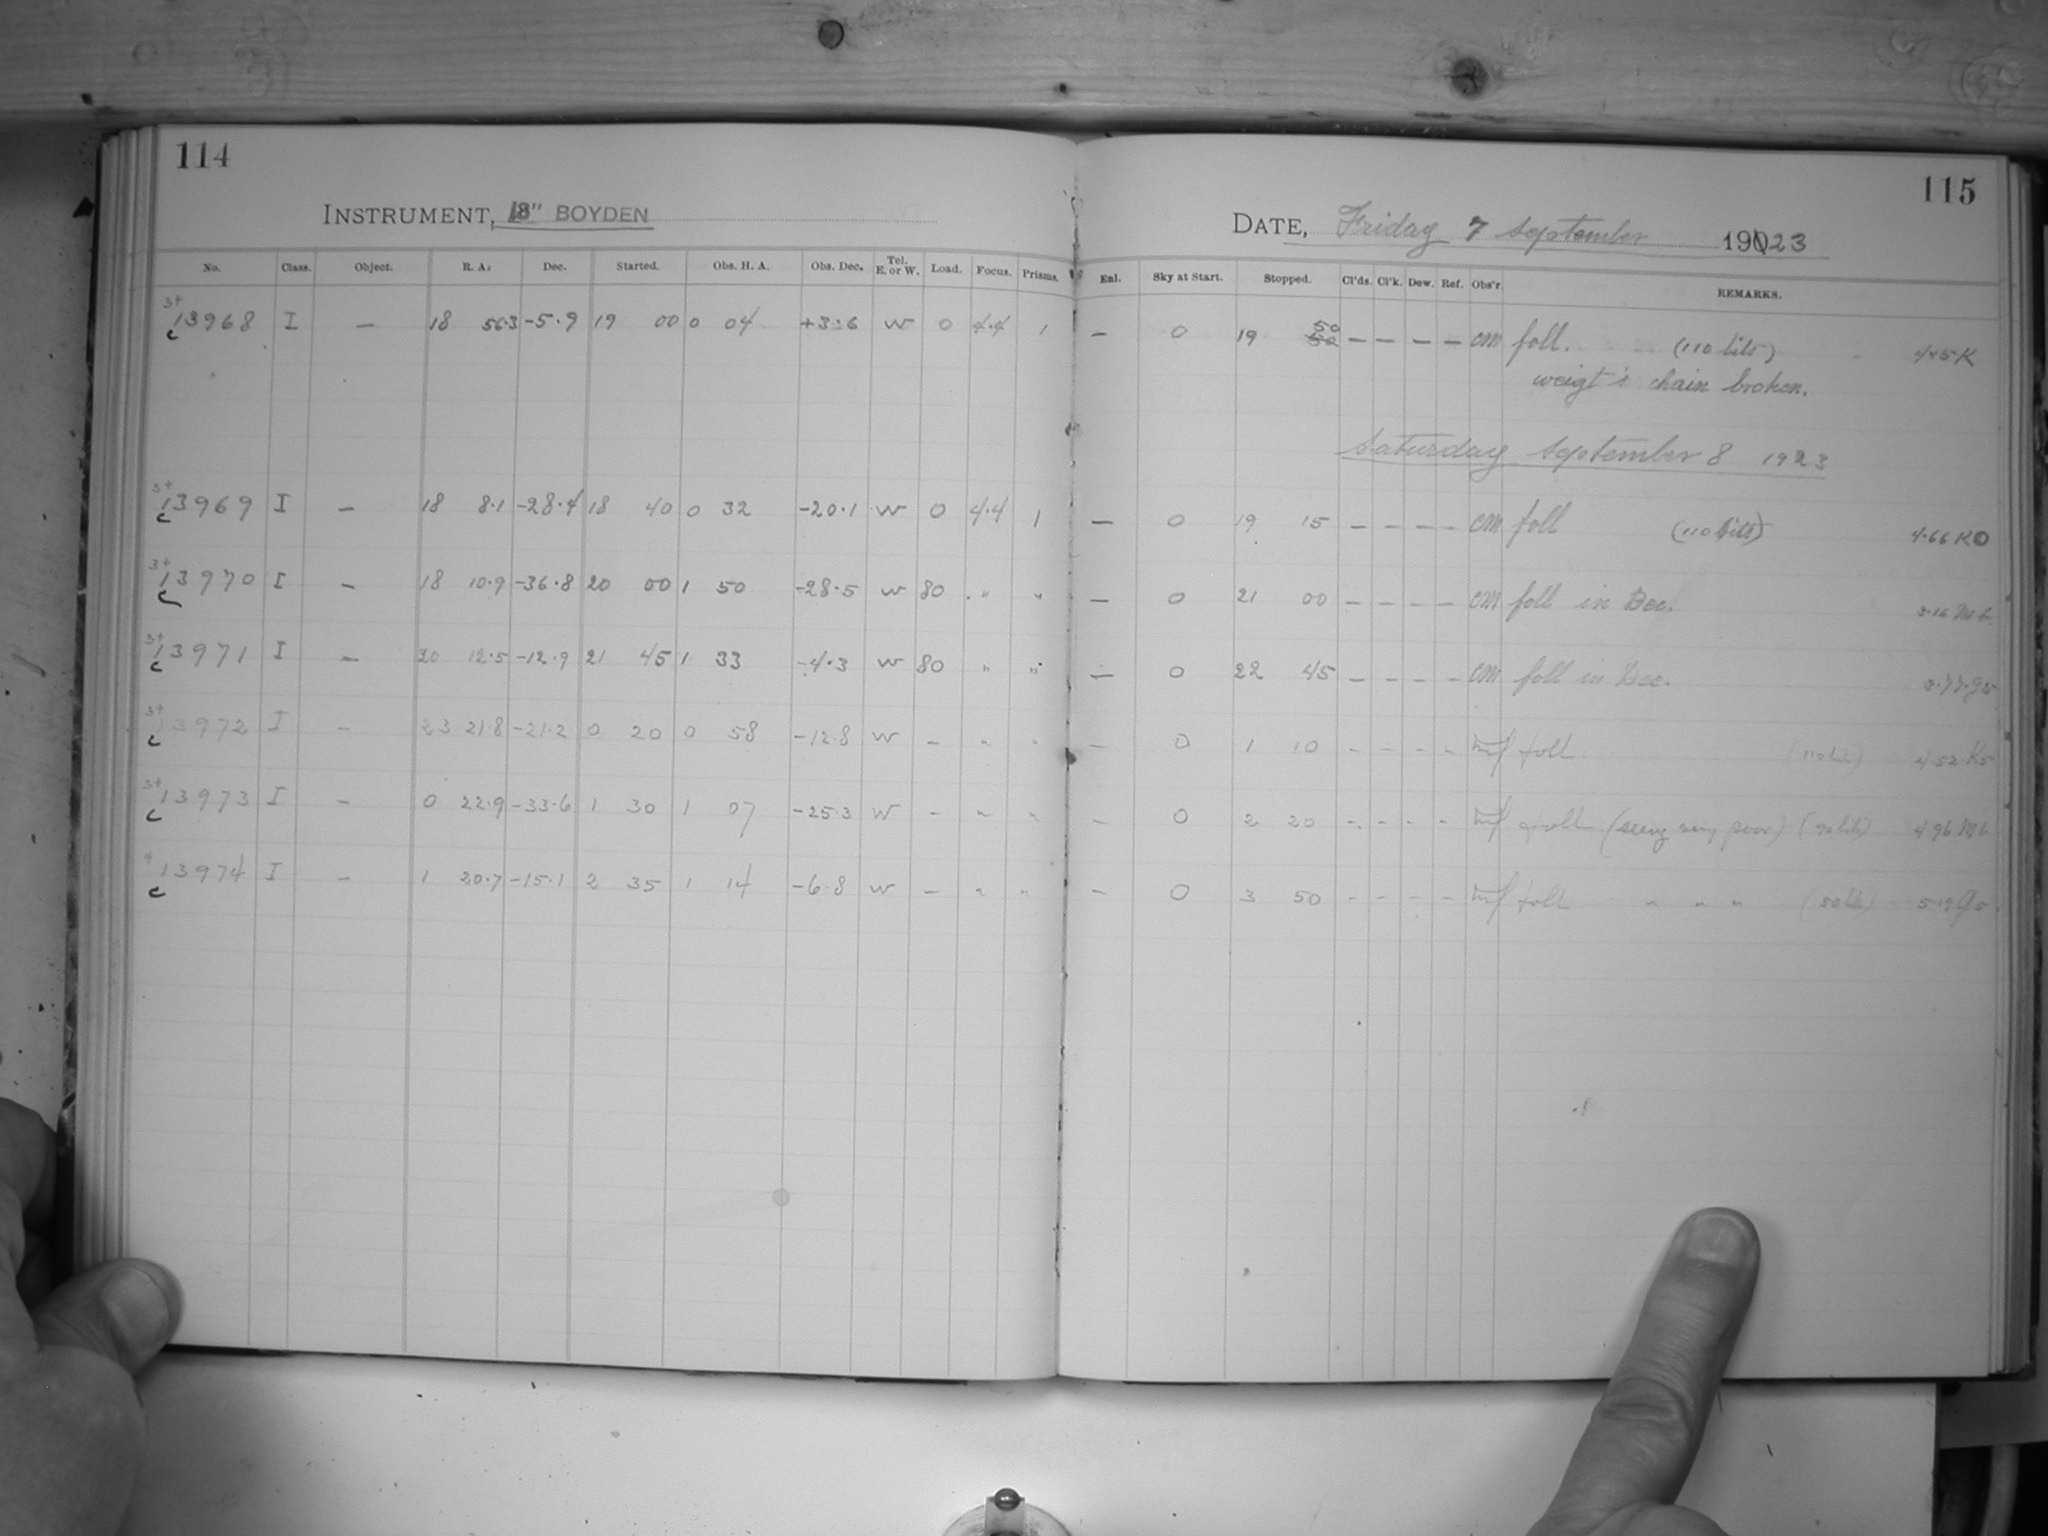 114
INSTRUMENT, 8" BOYDEN
No. Class. Object. R. A. Dec. Started. Obs. H. A. Obs. Dec. Tel. E. or W. Load. Focus. Prisms.
3+ 13968 I — 18 56.3 -5.9 19 00 0 04 +3.6 W 0 4.4 1
3+ 13969 I — 18 8.1 -28.4 18 40 0 32 -20.1 W 0 4.4 1
3+ 13970 I — 18 10.9 -36.8 20 00 1 50 -28.5 W 80 " "
3+ 13971 I — 20 12.5 -12.9 21 45 1 33 -4.3 W 80 " "
3+ 13972 I — 23 21.8 -21.2 0 20 0 58 -12.8 W — " "
3+ 13973 I — 0 22.9 -33.6 1 30 1 07 -25.3 W — " "
4 13974 I — 1 20.7 -15.1 2 35 1 14 -6.8 W — " "
115
DATE, Friday 7 September 1923
Enl. Sky at Start. Stopped. Cl'ds. Cl'k. Dew. Ref. Obs'r. REMARKS.
— 0 19 50 — — — — cm foll. (110 bits)
weigt's chain broken.
Saturday September 8 1923
— 0 19 15 — — — — cm foll (110 bits) 4.66 K0
— 0 21 00 — — — — cm foll in Dec.
— 0 22 45 — — — — cm foll in Dec.
— 0 1 10 - - - - foll 4.52 K5
— 0 2 20 - - - - foll (seeing very poor) 4.96
— 0 3 50 - - - - foll " " "